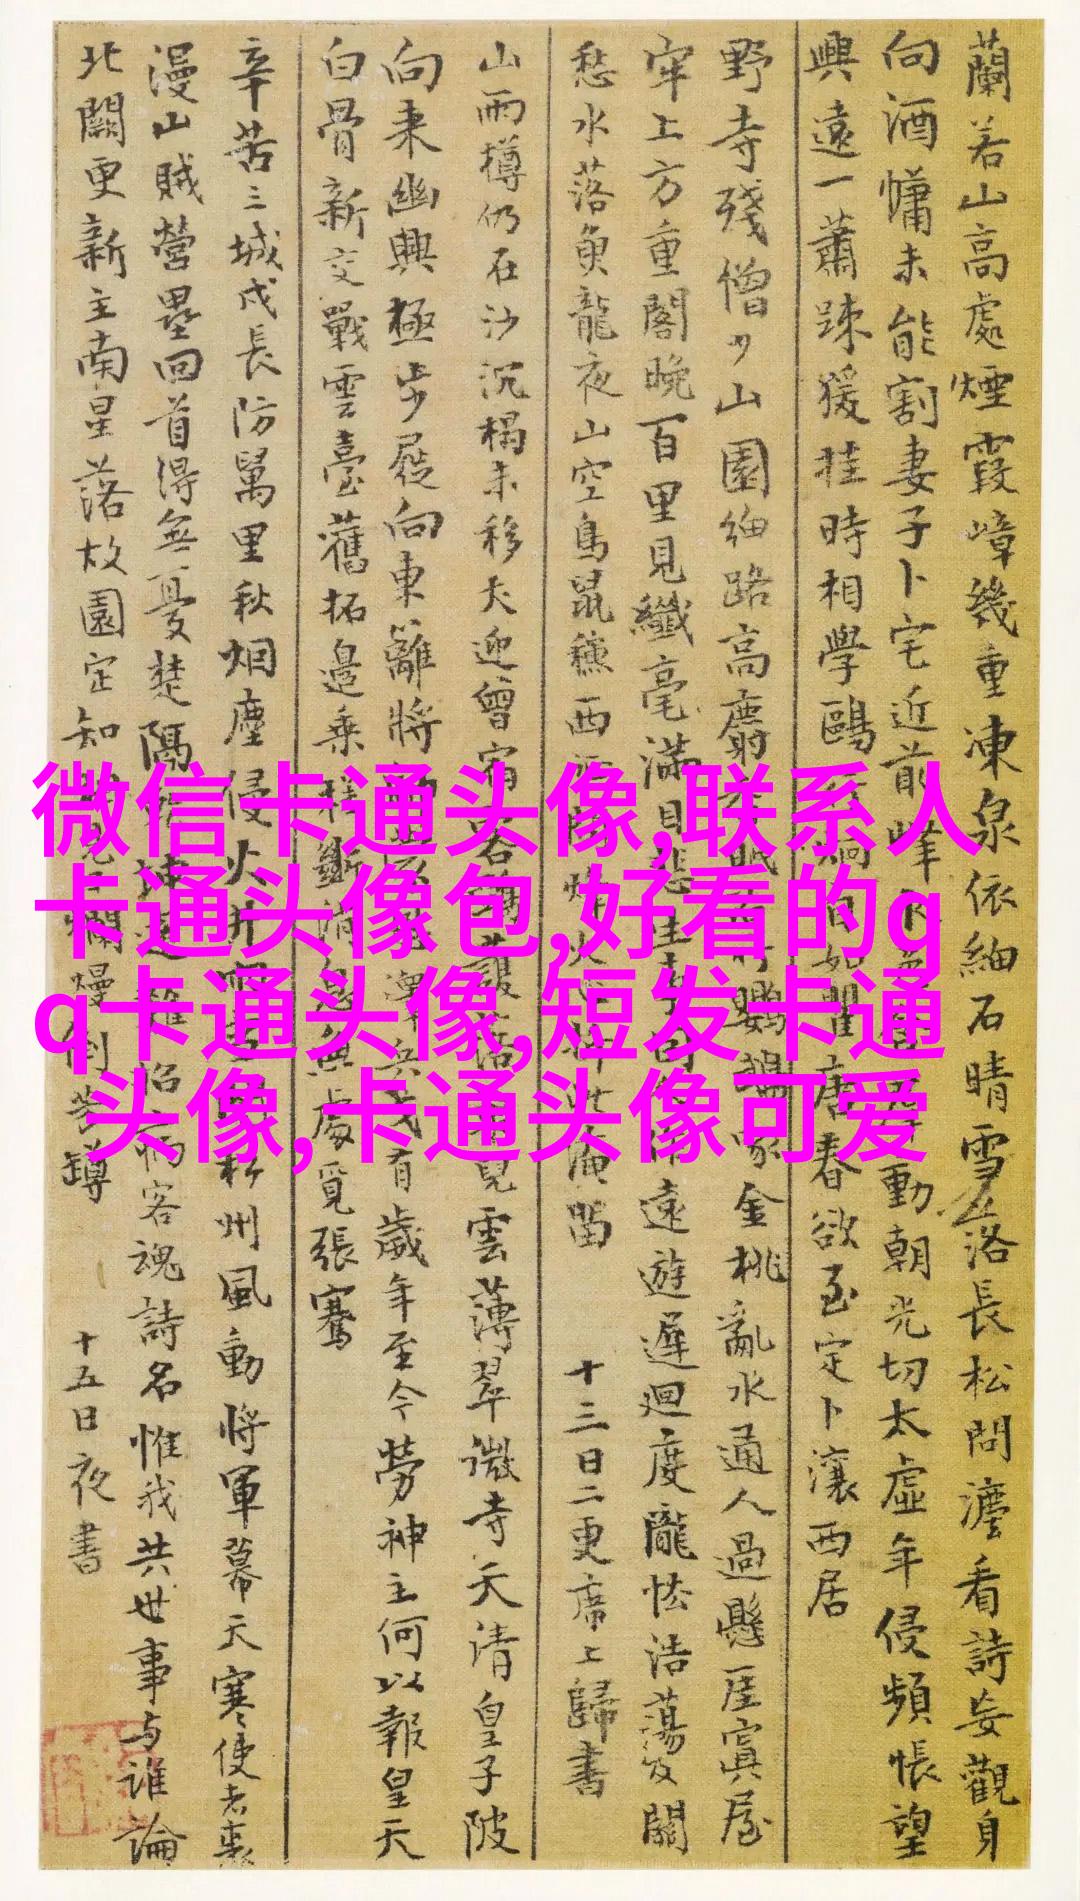 蘭若山高處煙霞嶂幾重凍泉依細石晴雪落長松問灋看詩妄觀身
向酒慵未能割妻子卜宅近前峰動朝光切太虛年侵頻悵望
興遠一蕭踈猨挂時相學鷗唐春欲至定卜瀼西居
野寺殘僧少山園細路高麝金桃亂水通人過懸崖寘屋
牢上方重閣晚百里見纖毫滿目悲生事因人作遠遊遲迴度隴怯浩蕩及關
愁水落魚龍夜山空鳥鼠穐西留 十三日二更席上歸書
山雨樽仍在沙沉榻未移犬迎曾宿見雲薄翠微寺天清皇子陂
向来幽興極步屧向東籬將有歲年至今勞神主何以報皇天
白骨新交戰雲臺舊拓邊乘槎斷消息無處覓張騫
辛苦三城戍長防萬里秋烟塵侵火井松州風動將軍幕天寒使者裘
漫山賊營壘回首得無憂楚隔客魂詩名惟我共世事与誰論
北闕更新主南星落故園定知爛熳倒芳罇 十五日夜書
微信卡通头像,联系人
卡通头像包,好看的q
q卡通头像,短发卡通
头像,卡通头像可爱